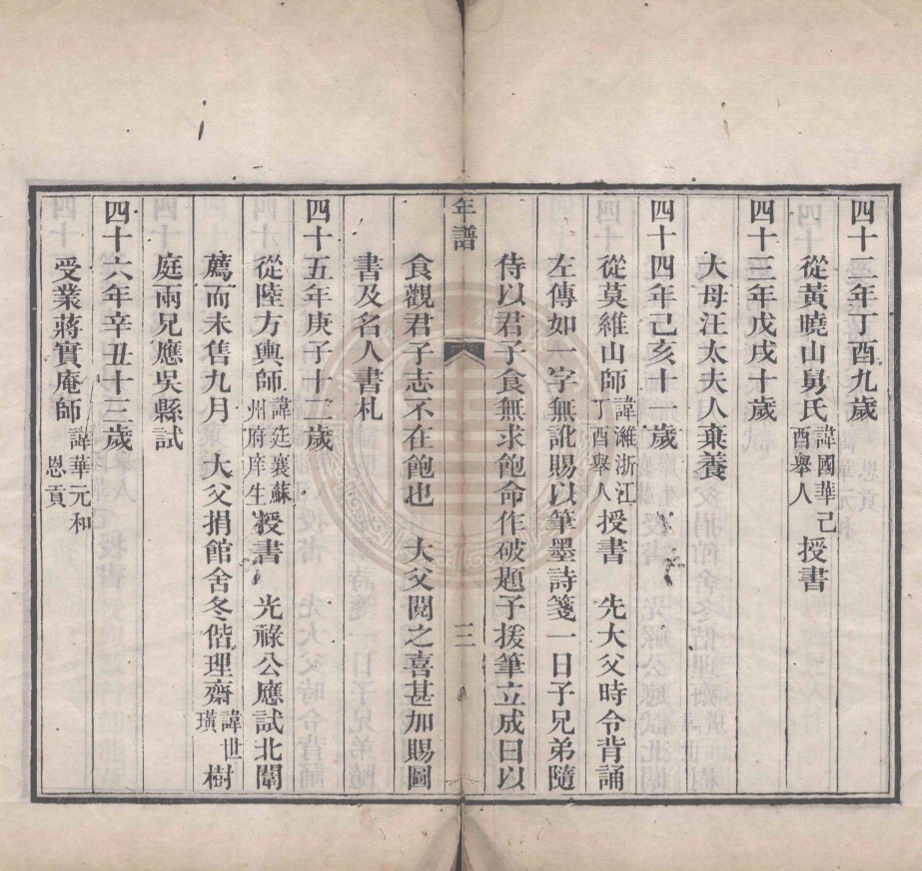 四十二年丁酉九歲
從黃曉山舅氏諱國華己酉舉人授書
四十三年戊戌十歲
大母汪太夫人棄養
四十四年己亥十一歲
從莫維山師諱濰浙江丁酉舉人授書　先大父時令背誦
左傳如一字無訛賜以筆墨詩箋一日予兄弟隨
侍以君子食無求飽命作破題予援筆立成曰以
年譜　三
食觀君子志不在飽也　大父閱之喜甚加賜圖
書及名人書札
四十五年庚子十二歲
從陸方輿師諱廷襄蘇州府庠生授書　光祿公應試北闈
薦而未售九月　大父捐館舍冬偕理齋諱世璜樹
庭兩兄應吳縣試
四十六年辛丑十三歲
受業蔣實庵師諱華元和恩貢